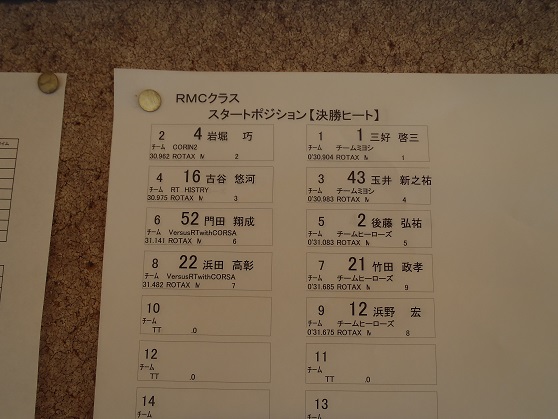 RMCクラス
スタートポジション【決勝ヒート】
2 4 岩堀 巧
チーム CORIN2
30.982 ROTAX M 2
1 1 三好 啓三
チーム チームミヨシ
0'30.904 ROTAX M 1
4 16 古谷 悠河
チーム RT HISTRY
30.975 ROTAX M 3
3 43 玉井 新之祐
チーム チームミヨシ
0'30.983 ROTAX M 4
6 52 門田 翔成
チーム VersusRTwithCORSA
31.141 ROTAX M 6
5 2 後藤 弘祐
チーム チームヒーローズ
0'31.083 ROTAX M 5
8 22 浜田 高彰
チーム VersusRTwithCORSA
31.482 ROTAX M 7
7 21 竹田 政孝
チーム チームヒーローズ
0'31.685 ROTAX M 9
10
チーム
TT .0
9 12 浜野 宏
チーム チームヒーローズ
0'31.675 ROTAX M 8
12
チーム
TT .0
11
チーム
TT
14
チーム
13
チーム